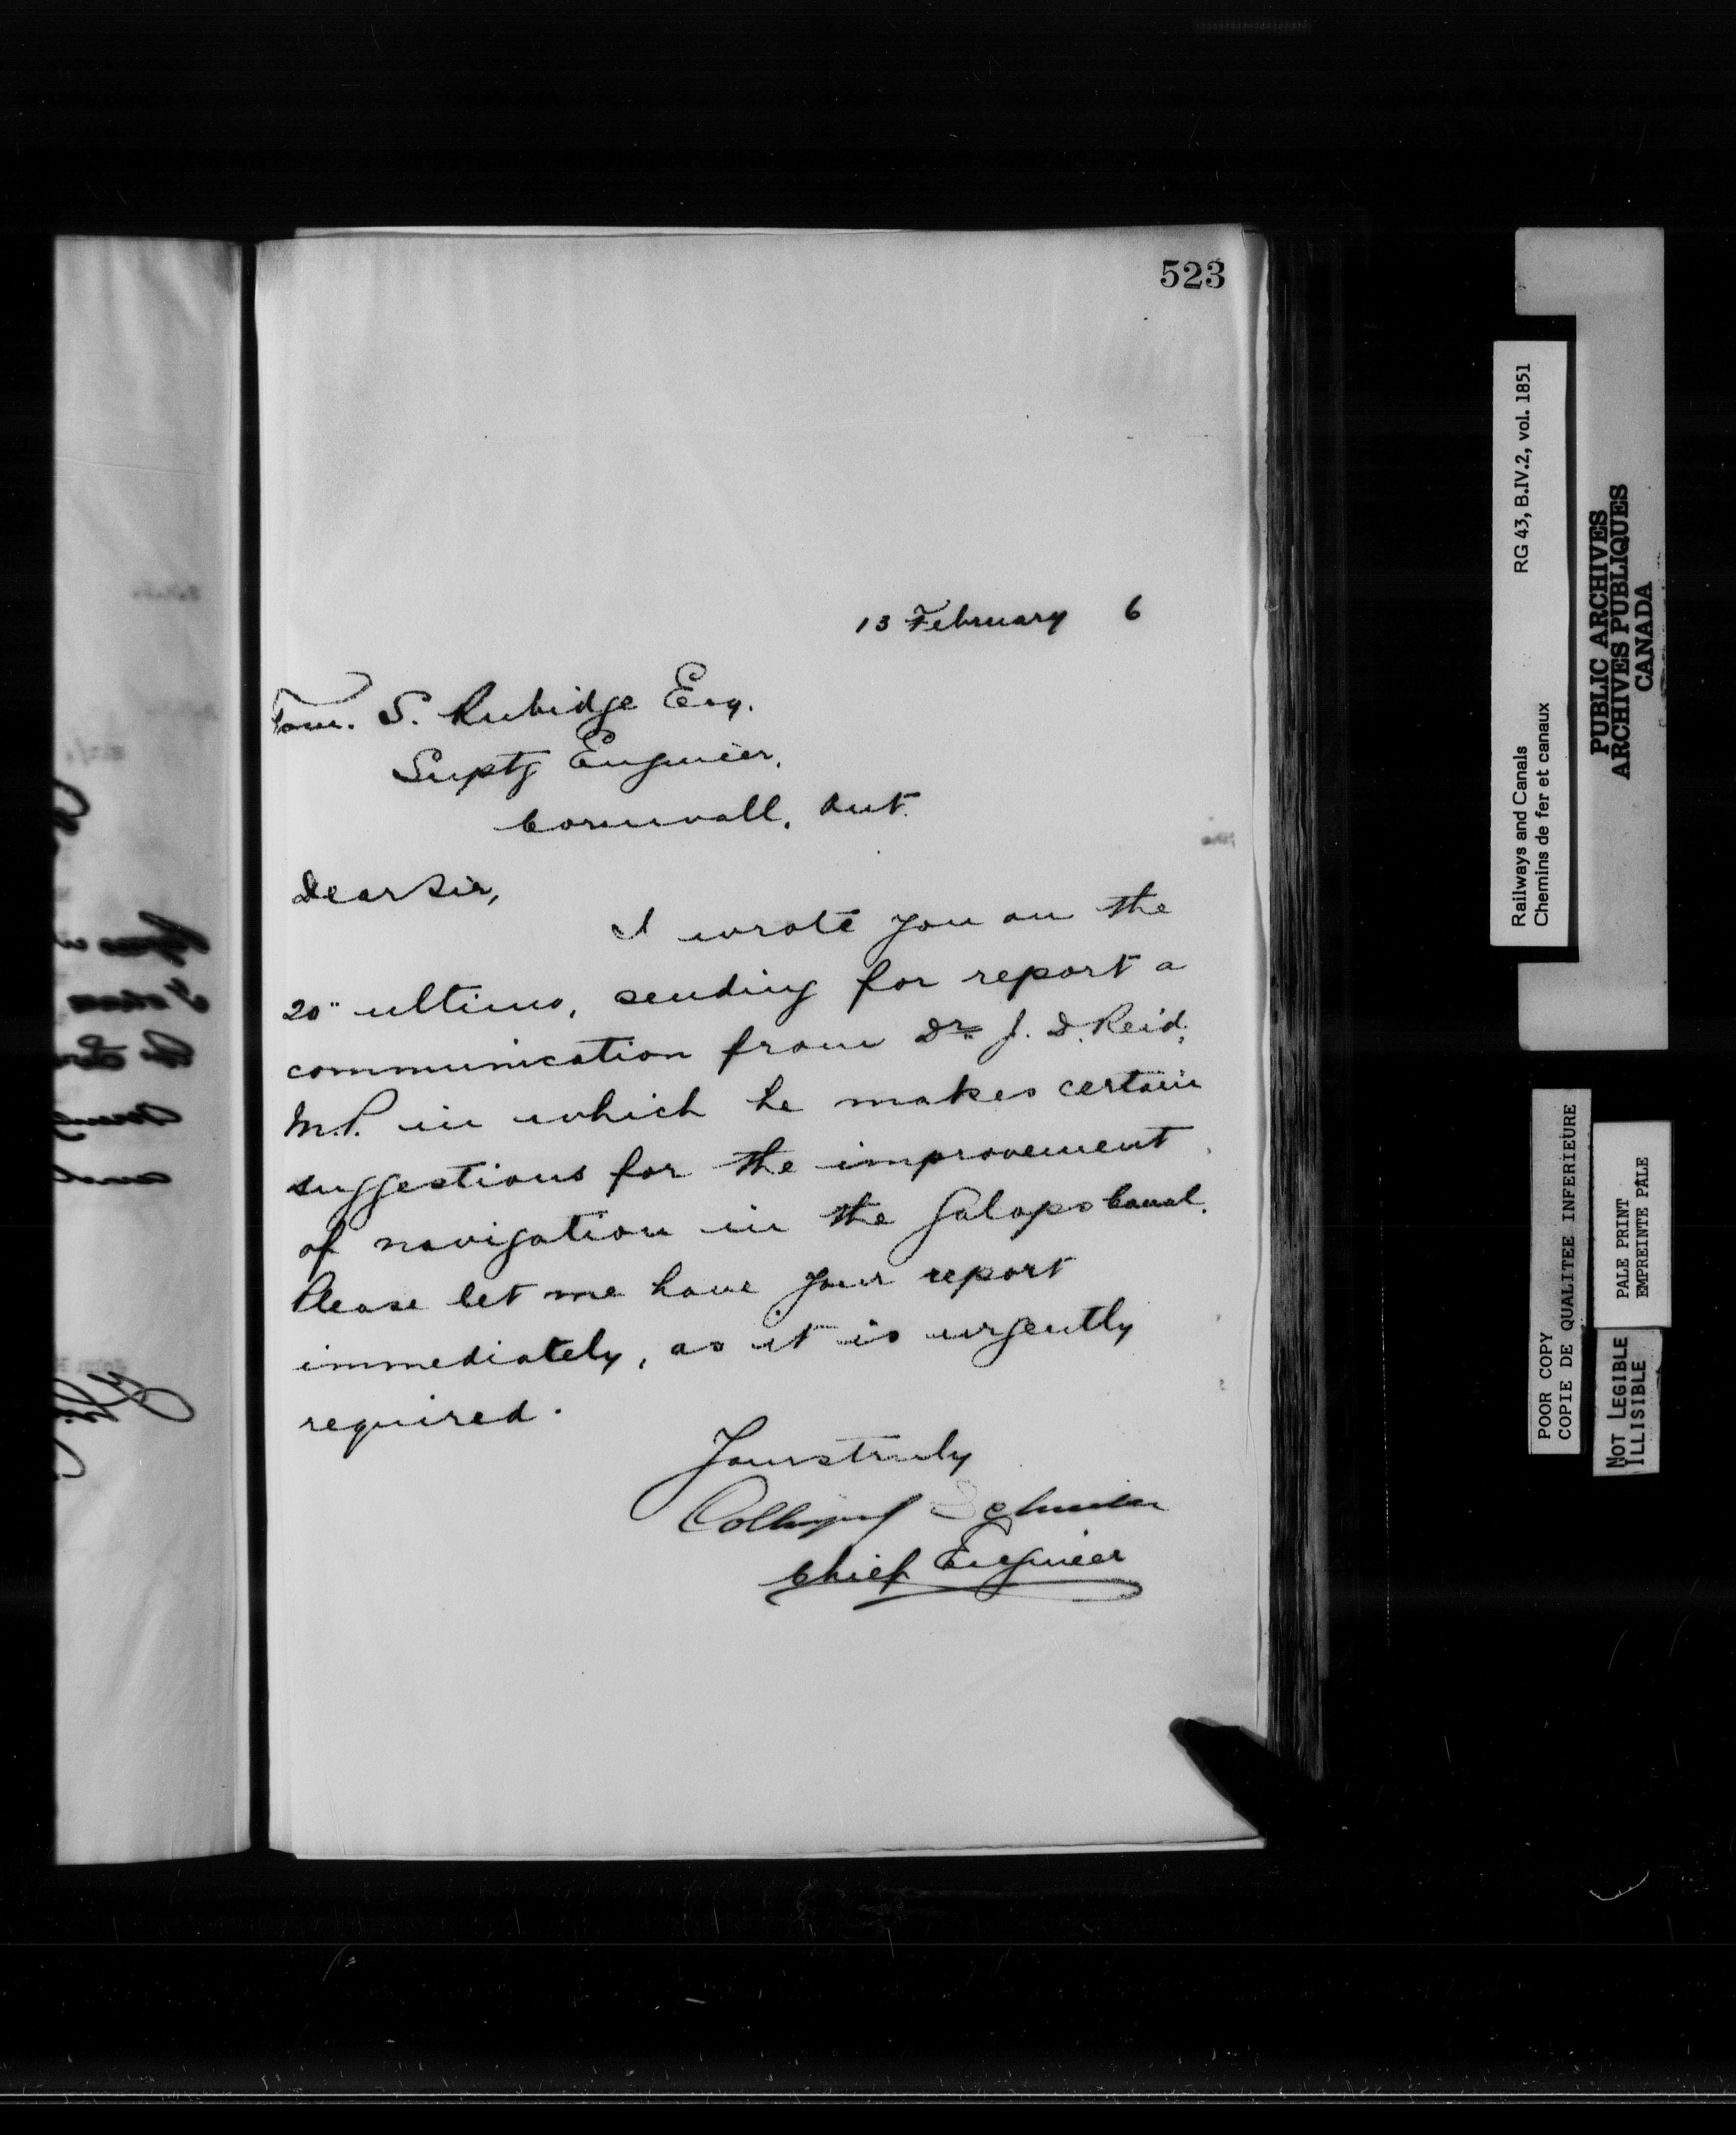 523
13 February 6
Tom. S. Rubidge Esq.
Suptg Engineer,
Cornwall, Ont.
Dear Sir,
I wrote you on the
20" ultimo, sending for report a
communication from Dr. J. D. Reid,
M.P. in which he makes certain
suggestions for the improvement
of navigation in the Galops Canal.
Please let me have your report
immediately, as it is urgently
required.
Yours truly
Collingwood Schreiber
Chief Engineer
Railways and Canals RG 43, B.IV.2, vol. 1851
Chemins de fer et canaux
PUBLIC ARCHIVES
ARCHIVES PUBLIQUES
CANADA
POOR COPY
COPIE DE QUALITEE INFERIEURE
PALE PRINT
EMPREINTE PALE
NOT LEGIBLE
ILLISIBLE